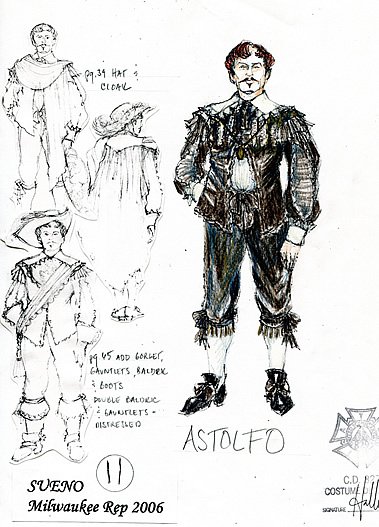 pg. 34 HAT &
CLOAK
pg 45 ADD GORGET,
GAUNTLETS, BALDRIC
& BOOTS
DOUBLE BALDRIC
& GAUNTLETS -
DISTRESSED
ASTOLFO
11
SUENO
Milwaukee Rep 2006
C.D.
COSTUME
SIGNATURE